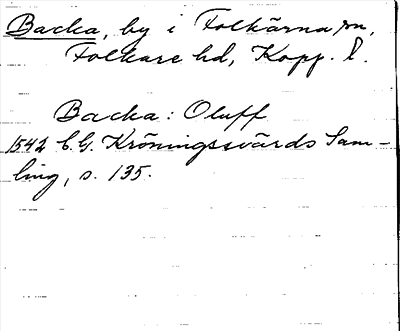 Backa, by i Folkärna sn,
Folkare hd, Kopp. l.
Backa: Oluff
1542 C.G. Kröningssvärds Sam-
ling, s. 135.